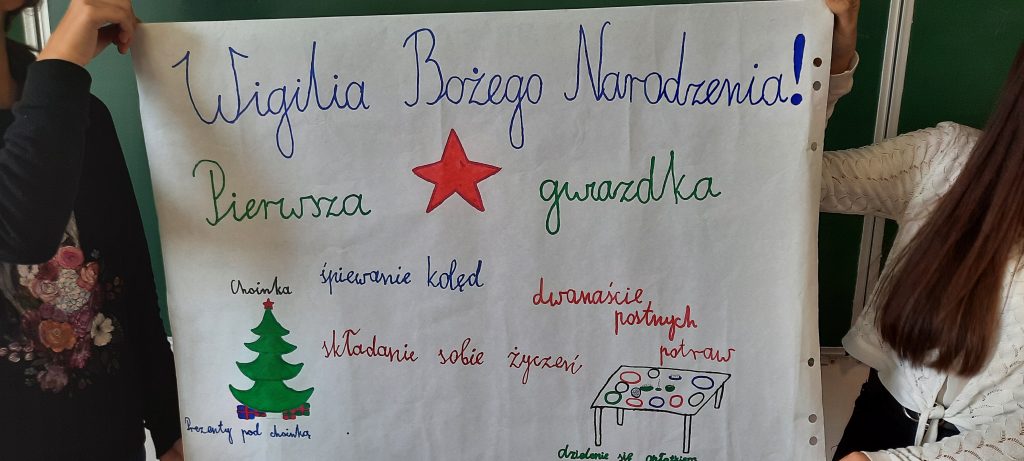 Wigilia Bożego Narodzenia!
Pierwsza gwiazdka
Choinka
śpiewanie kolęd
dwanaście
postnych
potraw
składanie sobie życzeń
Prezenty pod choinką
dzielenie się opłatkiem